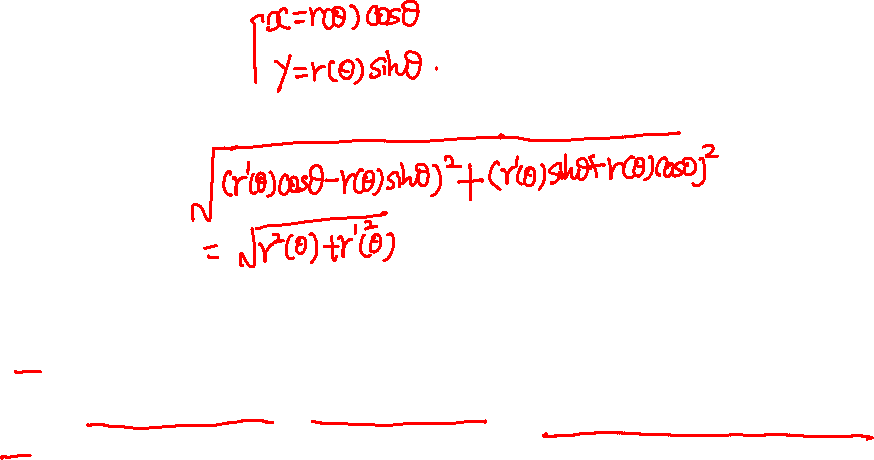 x=r(θ)cosθ
y=r(θ)sinθ.
√((r'(θ)cosθ-r(θ)sinθ)²+(r'(θ)sinθ+r(θ)cosθ)²)
=√(r²(θ)+r'²(θ))